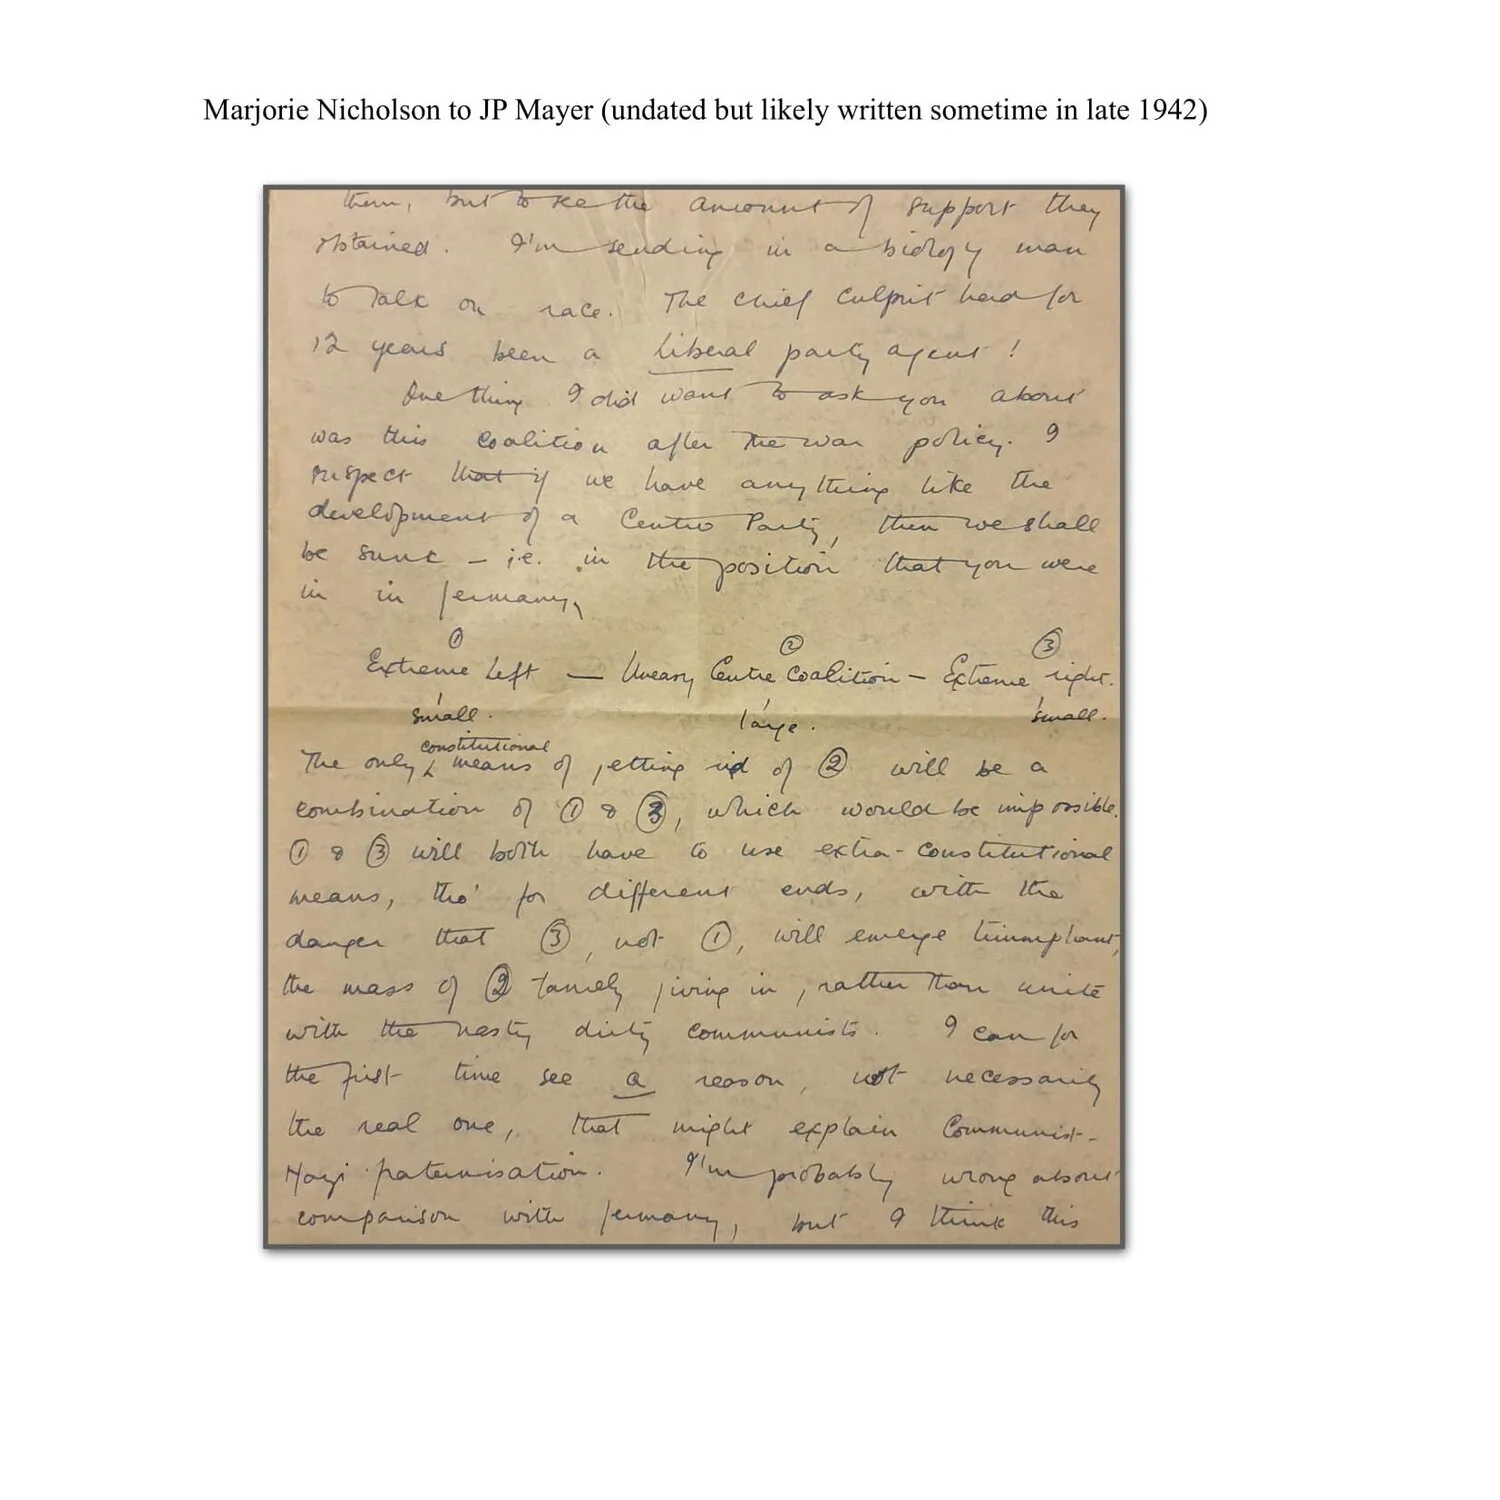 Marjorie Nicholson to JP Mayer (undated but likely written sometime in late 1942)
them, but to see the amount of support they
obtained. I'm sending in a biology man
to talk on race. The chief culprit had for
12 years been a Liberal party agent!
One thing I did want to ask you about
was this coalition after the war policy. I
suspect that if we have anything like the
development of a Centre Party, then we shall
be sunk – i.e. in the position that you were
in in Germany,
① ② ③
Extreme Left — Uneasy Centre Coalition – Extreme right.
small. large. small.
constitutional
The only ^ means of getting rid of ② will be a
combination of ① & ③, which would be impossible.
① & ③ will both have to use extra-constitutional
means, tho' for different ends, with the
danger that ③, not ①, will emerge triumphant,
the mass of ② tamely giving in, rather than unite
with the nasty dirty communists. I can for
the first time see a reason, not necessarily
the real one, that might explain Communist-
Nazi fraternisation. I'm probably wrong about
comparison with Germany, but I think this